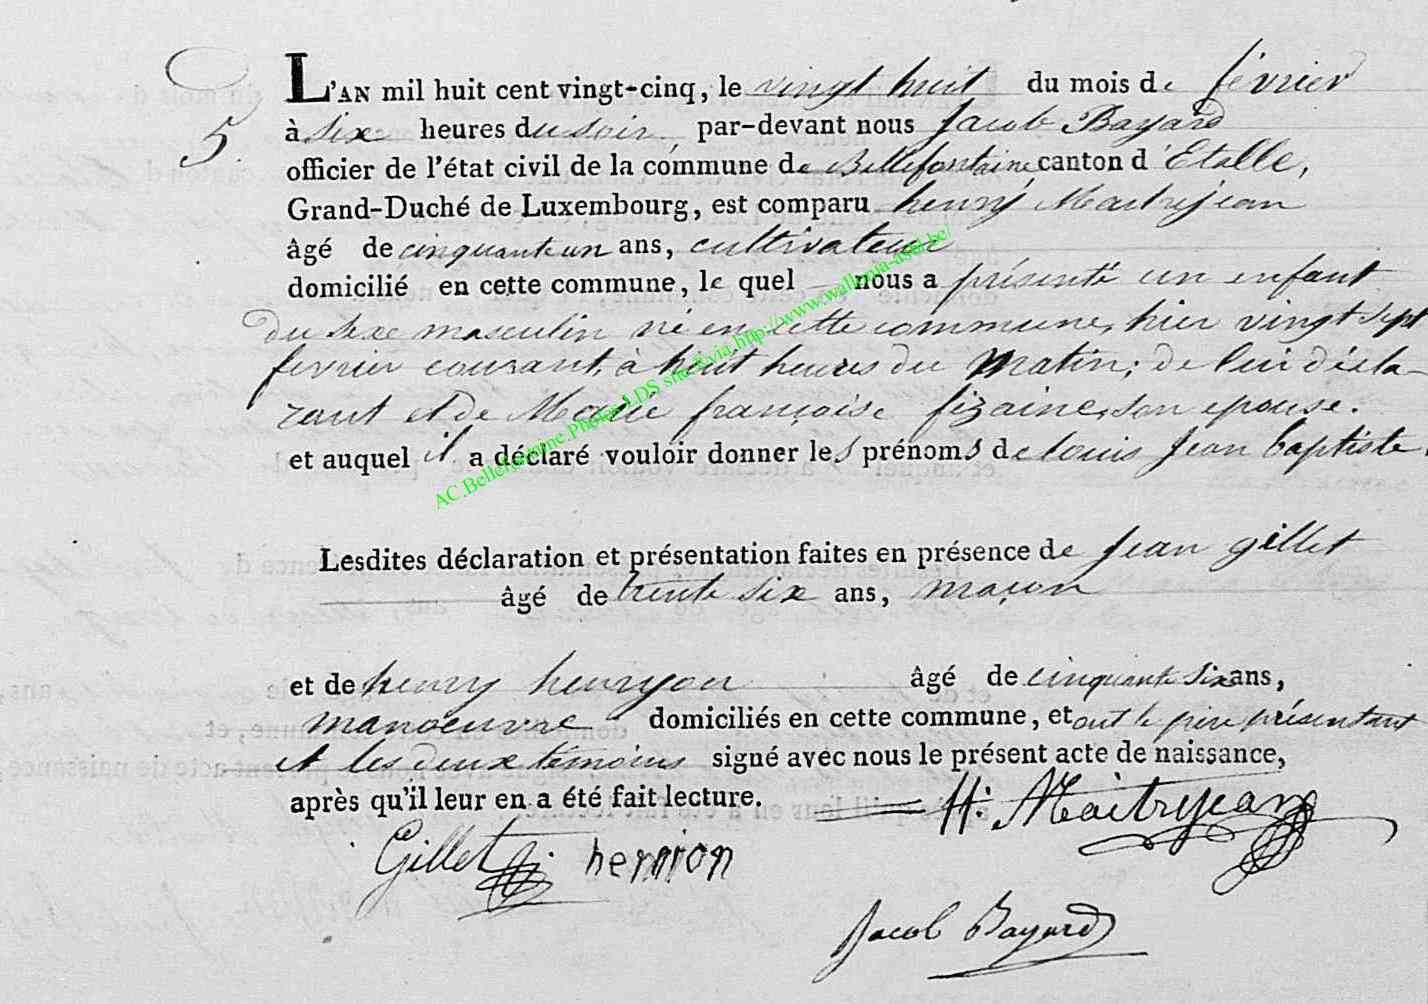 5.
L'AN mil huit cent vingt-cinq, le vingt huit du mois de février
à six heures du soir, par-devant nous Jacob Bayard
officier de l'état civil de la commune de Bellefontaine canton d'Etalle,
Grand-Duché de Luxembourg, est comparu henry Maitrejean
âgé de cinquante un ans, cultivateur
domicilié en cette commune, le quel nous a présenté un enfant
du sexe masculin né en cette commune, hier vingt sept
fevrier courant, à huit heures du matin; de lui décla-
rant et de Marie françoise fizaine, son epouse.
et auquel il a déclaré vouloir donner les prénoms de louis Jean baptiste.
Lesdites déclaration et présentation faites en présence de Jean gillet
âgé de trente six ans, maçon
et de henry henryon âgé de cinquante six ans,
manoeuvre domiciliés en cette commune, et ont le père présentant
et les deux témoins signé avec nous le présent acte de naissance,
après qu'il leur en a été fait lecture. H: Maitrejean
Gillet henrion
Jacob Bayard
AC.Bellefontaine.Photos LDS site & via http://www.wallonia-asbl.be/